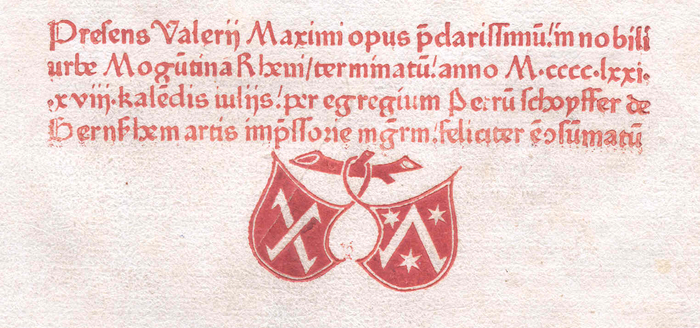 Presens Valerij Maximi opus p̄clarissimū! in nobili
urbe Mogūtina Rheni/ terminatū! anno M.cccc.lxxi.
.xviij. kalēdis iulijs! per egregium Petrū schoyffer de
Gernsʒhem artis imp̄ssorie mgr̄m! feliciter ē ꝯsūmatū